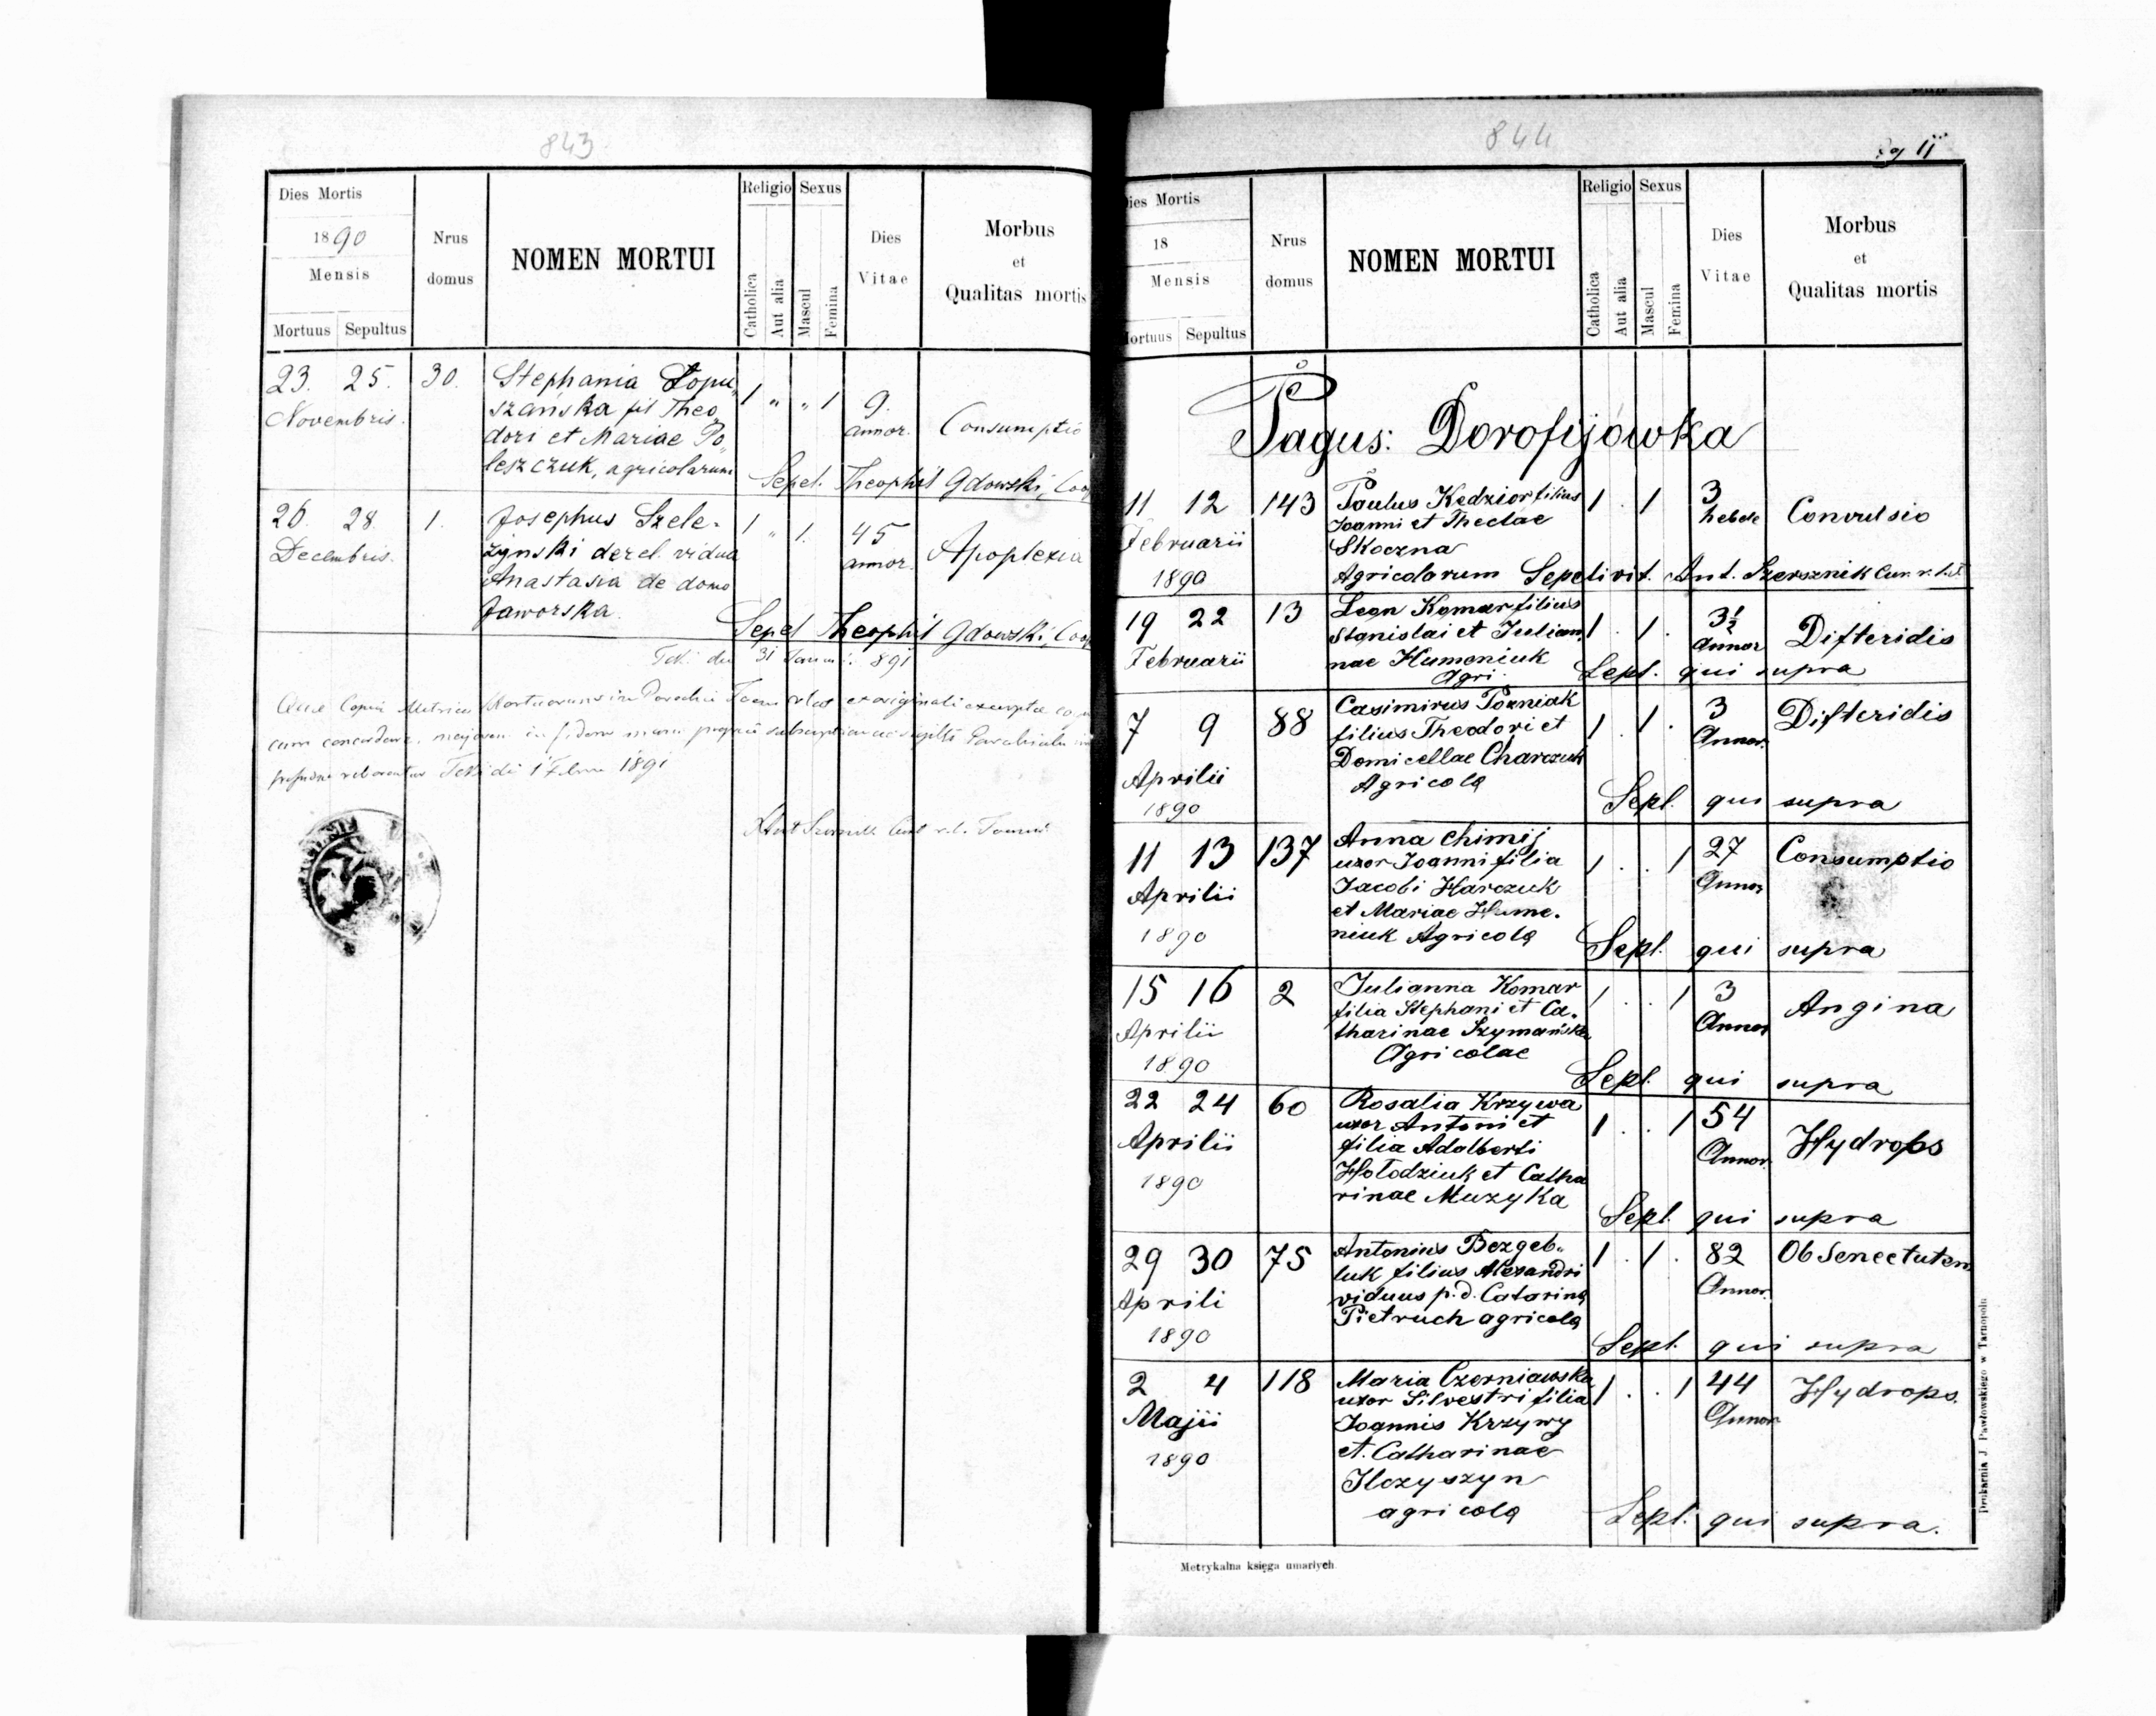 843
Dies Mortis
1890
Mensis
Mortuus Sepultus
Nrus
domus
NOMEN MORTUI
Religio
Catholica
Aut alia
Sexus
Mascul
Femina
Dies
Vitae
Morbus
et
Qualitas mortis
23. 25. 30. Stephania Łopu„ 1 „ „ 1 9.
Novembris. szańska fil Theo„ annor. Consumptio
dori et Mariae Po„
leszczuk, agricolarum
Sepel. Theophil Gdowski, Coop
26. 28. 1. Josephus Szele- 1 „ 1. 45
Decembris. żynski derel. vidua annor. Apoplexia
Anastasia de domo
Jaworska.
Sepel Theophil Gdowski, Coop
31 891
Copia Mortuorum in originali
cum
1891
844
11
Dies Mortis
18
Mensis
Mortuus Sepultus
Nrus
domus
NOMEN MORTUI
Religio
Catholica
Aut alia
Sexus
Mascul
Femina
Dies
Vitae
Morbus
et
Qualitas mortis
Pagus: Dorofijówka
11 12 143 Paulus Kędzior filius 1 . 1 3
Februarii Joanni et Theclae hebde Convulsio
Skoczna
1890 Agricolarum Sepelivit. Ant. Szersznik Cur. r. l.
19 22 13 Leon Komar filius 1 . 1 . 3½
Februarii Stanislai et Julian„ Annor Difteridis
nae Humeniuk
Agri. Sepl. qui supra
7 9 88 Casimirus Poźniak 1 . 1 . 3 Difteridis
filius Theodori et Annor.
Aprilii Domicellae Charczuk
1890 Agricola Sepl. qui supra
11 13 137 Anna Chimij 1 . . 1 27 Consumptio
uxor Joanni filia Annor
Aprilii Jacobi Harczuk
et Mariae Hume.
1890 niuk Agricola Sepl. qui supra
15 16 2 Julianna Komar 1 . . 1 3 Angina
filia Stephani et Ca.
Aprilii tharinae Szymańska Annor
1890 Agricolae Sepl. qui supra
22 24 60 Rosalia Krzywa 1 . . 1 54 Hydrops
uxor Antoni et
Aprilii filia Adalberti Annor.
1890 Hołodziuk et Catha
rinae Muzyka Sepl. qui supra
29 30 75 Antonius Bezgeb„ 1 . 1 . 82 Ob Senectutem
luk filius Alexandri Annor.
Aprili viduus p. d. Catarina
1890 Pietruch agricola Sepl. qui supra
2 4 118 Maria Czerniawska 1 . . 1 44 Hydrops.
uxor Silvestri filia Annor
Majii Joannis Krzywy
1890 et. Catharinae
Ilczyszyn
agricola Sepl. qui supra.
Metrykalna księga umarłych.
Drukarnia J. Pawłowskiego w Tarnopolu